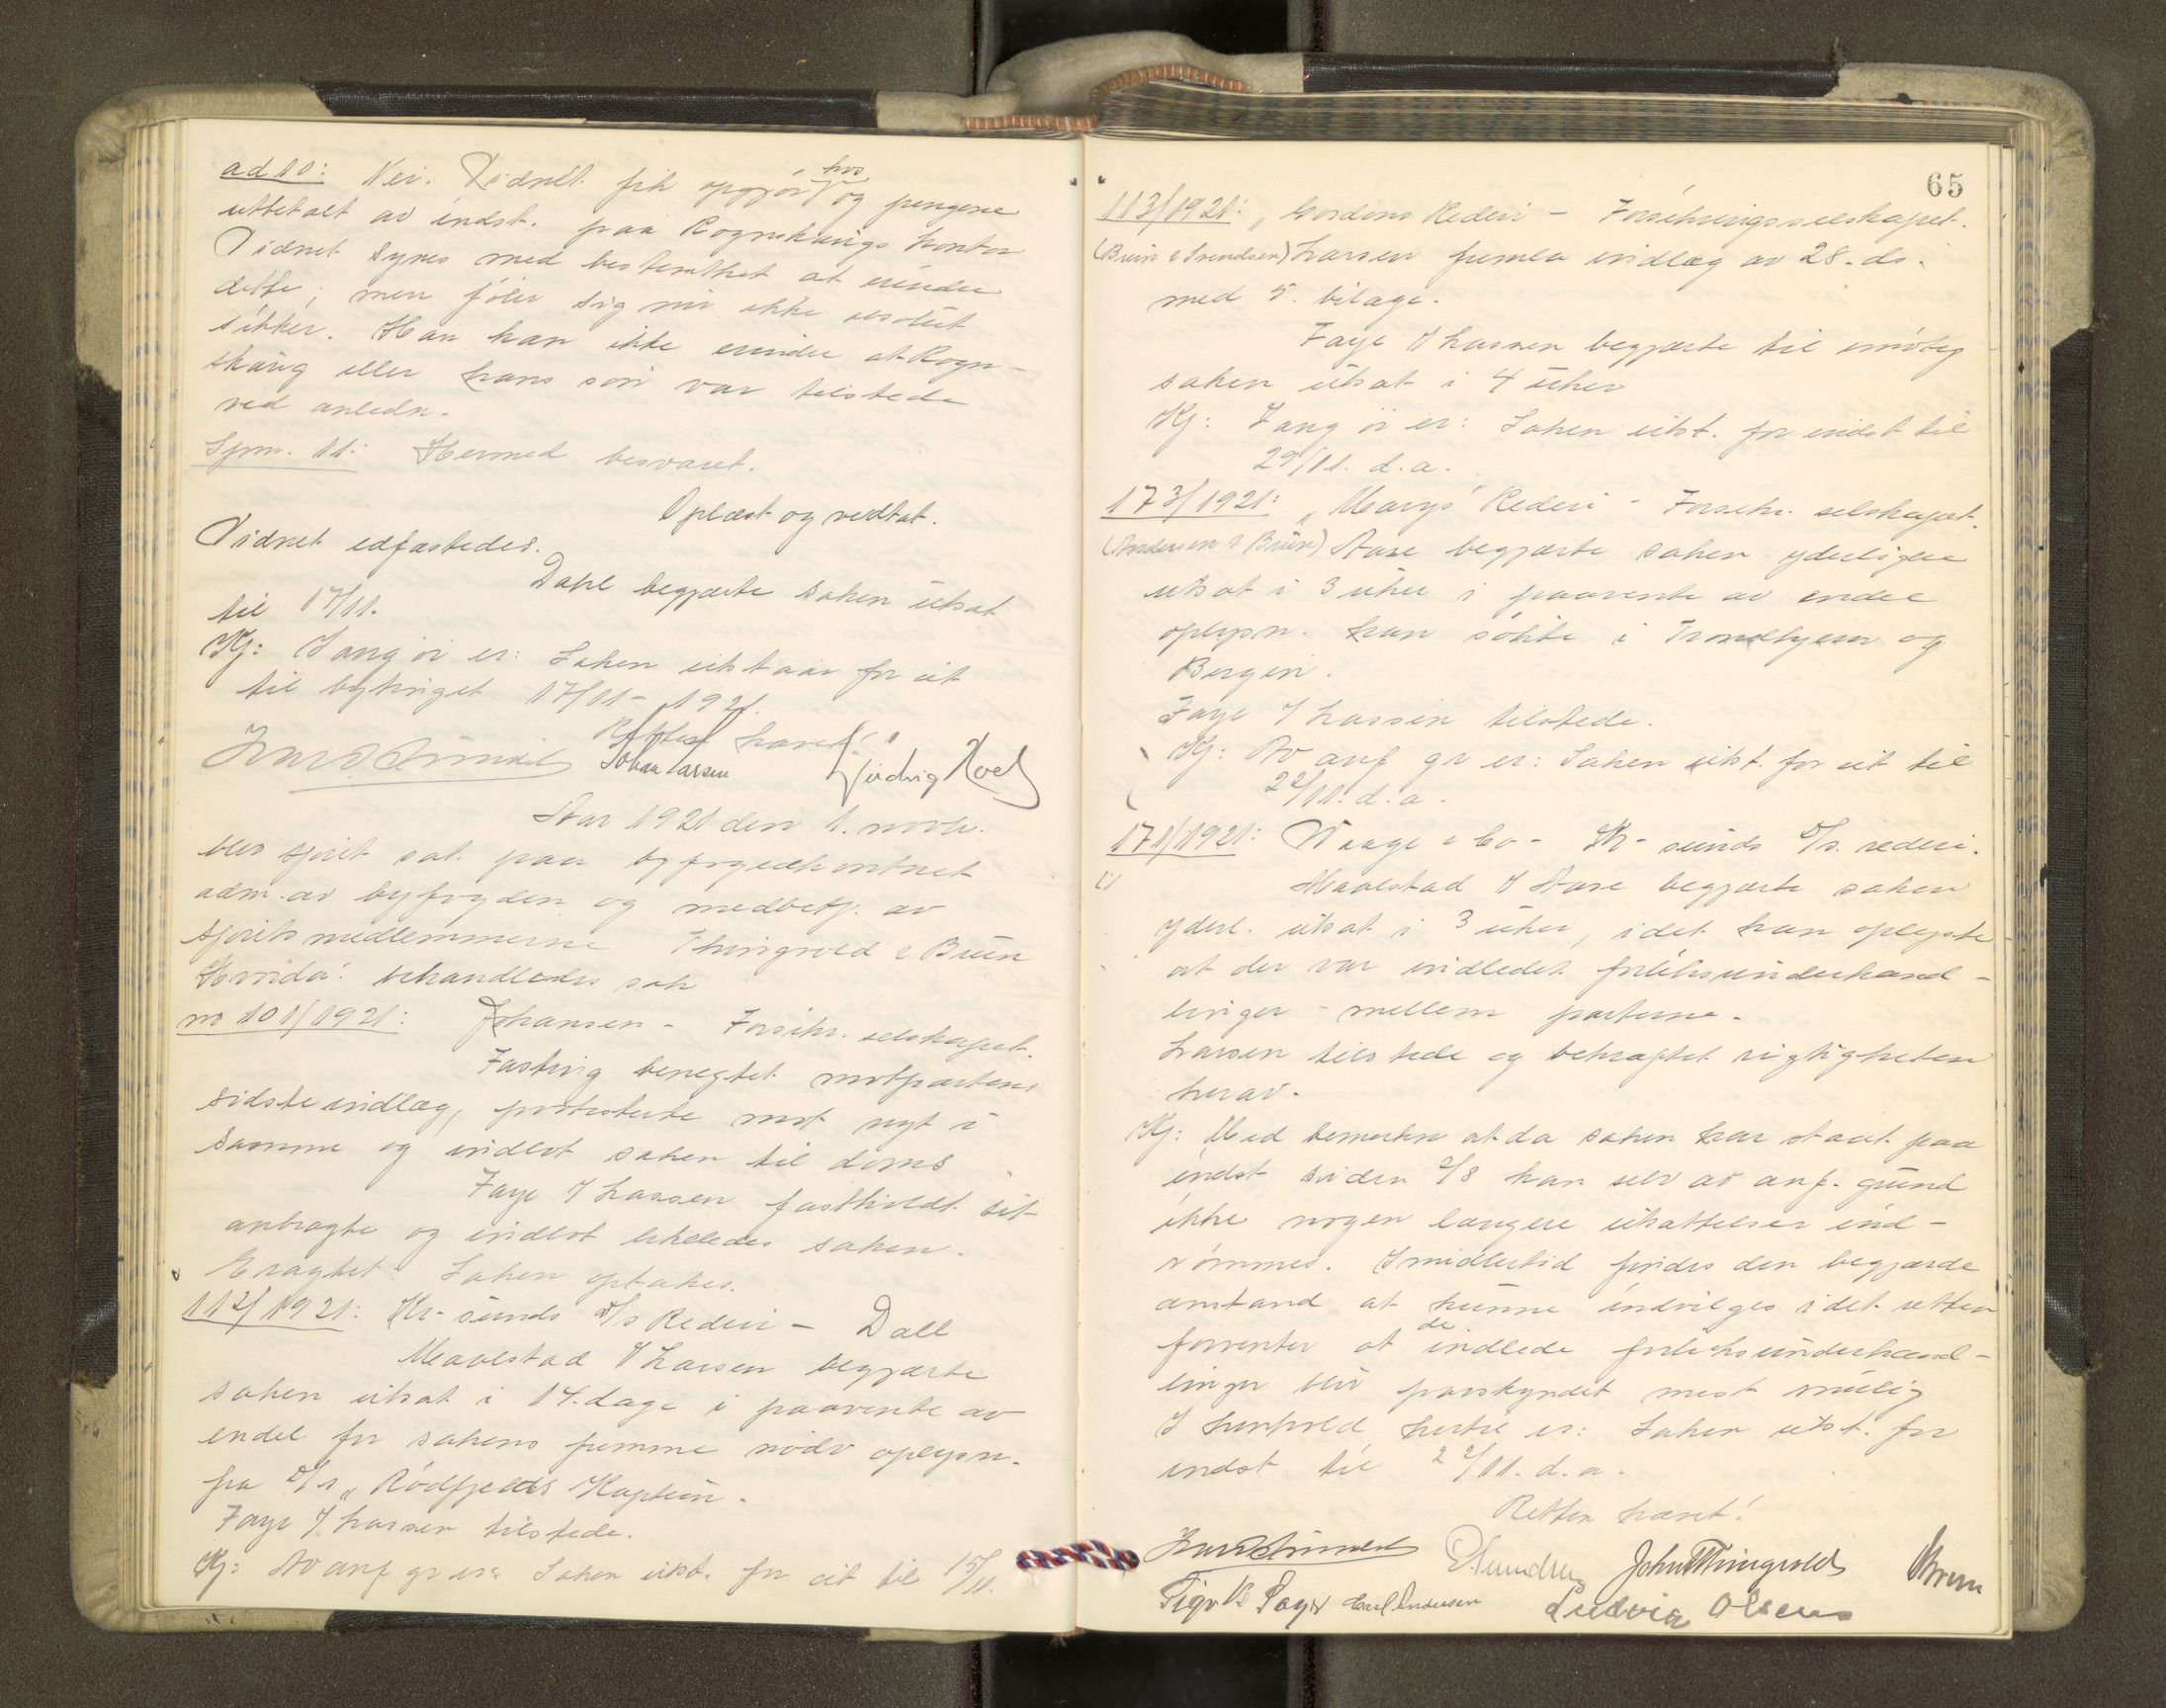 ad 10: Nei. Vidnet fik opgjör hos og pengene
utbetalt av indst. paa Rognskaugs kontor
Vidnet synes med bestemthet at erindre
dette; men föler sig nu ikke absolut
sikker. Han kan ikke erindre at Rogn-
skaug eller hans sön var tilstede
ved anledn.
Spm. 11: Hermed besvaret.
Oplæst og vedtat.
Vidnet edfæstedes.
Dahl begjærte saken utsat
til 17/11.
Kj: I ang öi er: Saken utstaar for vit
til bytinget 17/11-1921.
Retten hævet!
Johan Larsen Ludvig Hoel
Aar 1921 den 1. novbr.
blev sjöret sat paa byfogedkontoret
adm. av byfogden og medbetj. av
sjöretsmedlemmerne Thingvold & Bruun
Hvorda: behandledes sak
no 101/1921: Johansen - Forsikr. selskapet.
Fasting benegtet motpartens
sidste indlæg, protesterte mot nyt i
samme og indlot saken til doms
Faye f Larssen fastholdt sit
anbragte og indlot likeledes saken.
Eragtet: Saken optakes.
112/1921: Kr-sunds D/s Rederi - Dall
Maalstad f Larsen begjærte
saken utsat i 14. dage i paavente av
endel for sakens fremme nödv oplysn.
fra D/s "Rödfjelds Kaptein.
Faye f Larssen tilstede.
Kj: Av anf gr er: Saken utst. for vit til 15/11.
65
113/1921: "Gordons Rederi - Forsikringsselskapet.
(Bruun & Svendsen) Larsen fremla indlæg av 28. ds.
med 5. bilage.
Faye f Larssen begjærte til imöteg
saken utsat i 4 uker
Kj: I ang öi er: Saken utst. for indst til
29/11. d.a.
173/1921: "Marys" Rederi - Forsikr. selskapet.
(Andersen & Bruun) Aase begjærte saken yderligere
utsat i 3 uker i paavente av endel
oplysn. han sökte i Trondhjem og
Bergen.
Faye f Larssen tilstede.
Kj: Av anf gr er: Saken utst. for vit til
22/11. d.a.
171/1921: Waage & Co - Kr-sunds D/s. rederi.
Maalstad f Aase begjærte saken
yderl. utsat i 3 uker, idet han oplyste
at der var indledet forliksunderhand-
linger - mellem parterne.
Larsen tilstede og bekræftet rigtigheten
herav.
Kj: Med bemerkn at da saken har staat paa
indst siden 2/8 kan selv av anf. grund
ikke nogen længere utsættelser ind-
römmes. Imidlertid findes den begjærde
anstand at kunne indvilges idet retten
forventer at de indlede forliksunderhand-
linger blir paaskyndet mest mulig
I henhold hertil er: Saken utst. for
indst til 22/11. d.a.
Retten hævet!
E. Svendsen John Thingvold Bruun
Sigv B Faye Carl Andersen Ludvig Olsen